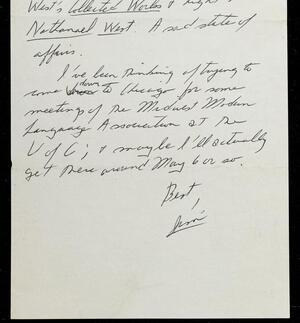 West's Collected Works & right
Nathanael West. A sad state of
affairs.
I've been thinking of trying to
down
come over to Chicago for some
meetings of the Midwest Modern
Language Association at the
U of C; & maybe I'll actually
get there around May 6 or so.
Best,
Jim